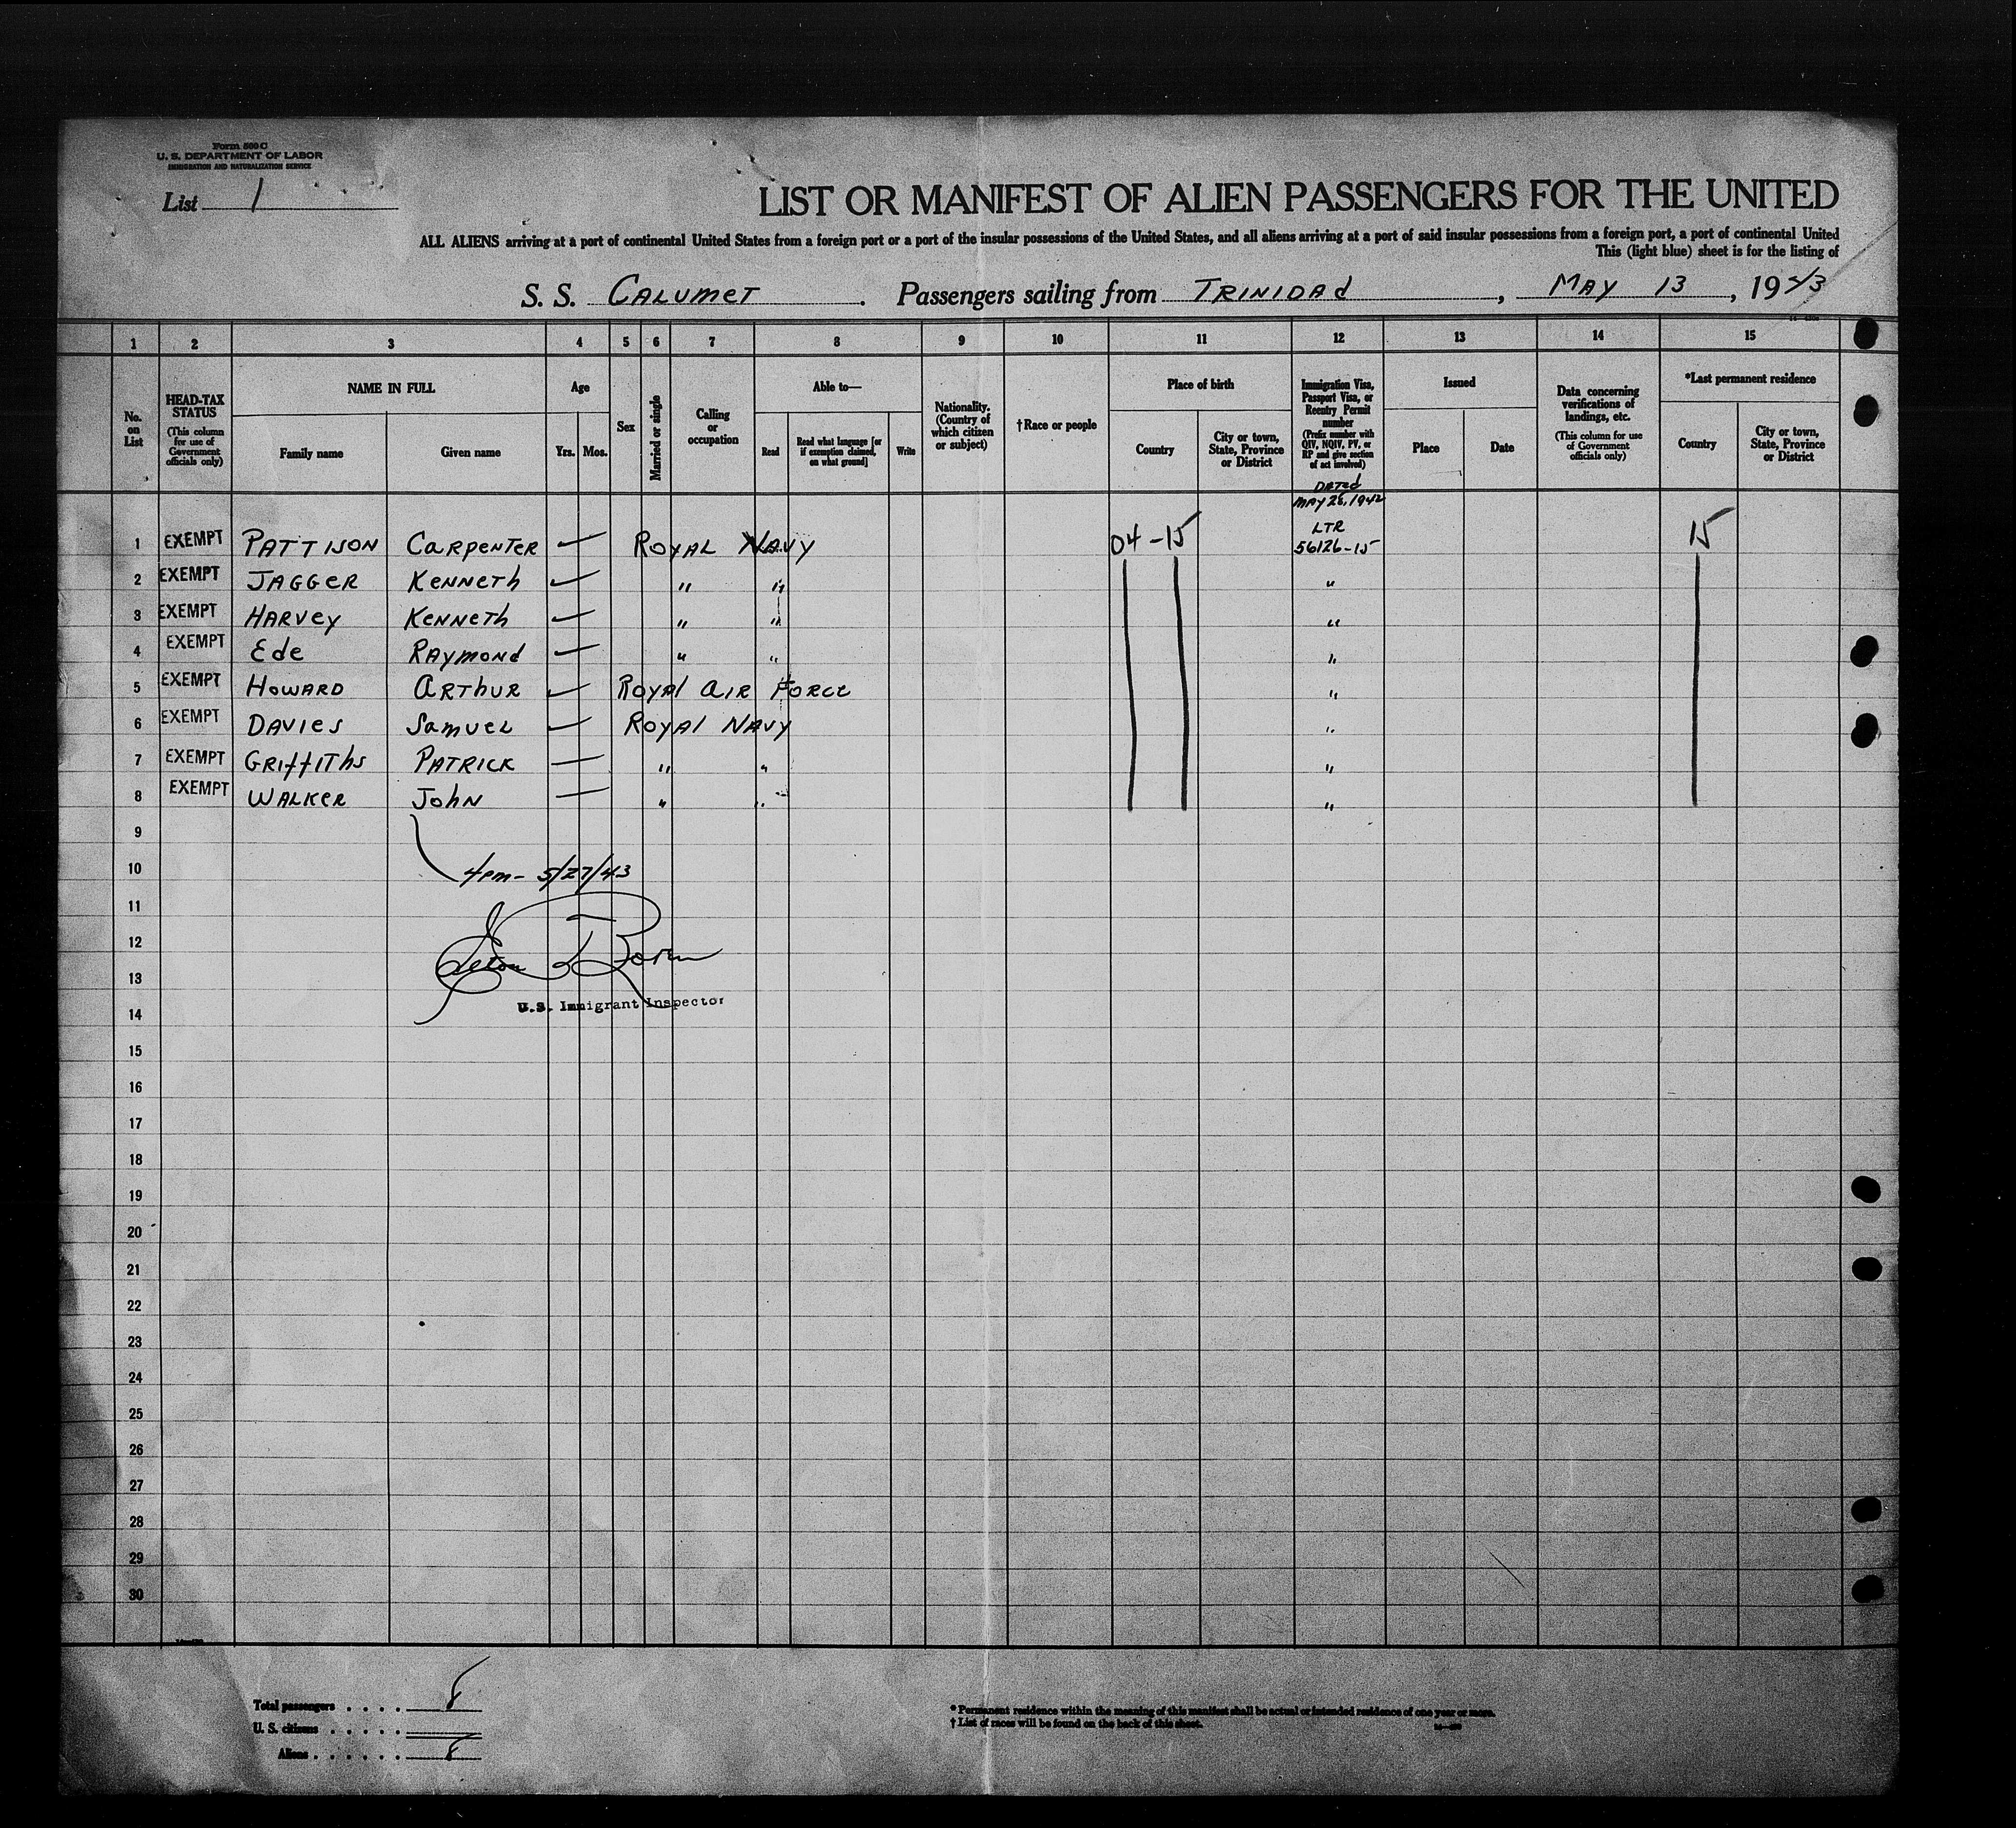 Form 500 C
U. S. DEPARTMENT OF LABOR
IMMIGRATION AND NATURALIZATION SERVICE
List 1
LIST OR MANIFEST OF ALIEN PASSENGERS FOR THE UNITED
ALL ALIENS arriving at a port of continental United States from a foreign port or a port of the insular possessions of the United States, and all aliens arriving at a port of said insular possessions from a foreign port, a port of continental United
This (light blue) sheet is for the listing of
S. S. CALUMET . Passengers sailing from TRINIDAd , MAY 13 , 1943
1 2 3 4 5 6 7 8 9 10 11 12 13 14 15
No. on List
HEAD-TAX STATUS (This column for use of Government officials only)
NAME IN FULL
Family name
Given name
Age
Yrs. Mos.
Sex
Married or single
Calling or occupation
Able to—
Read
Read what language [or if exemption claimed, on what ground]
Write
Nationality. (Country of which citizen or subject)
† Race or people
Place of birth
Country
City or town, State, Province or District
Immigration Visa, Passport Visa, or Reentry Permit number (Prefix number with QIV, NQIV, PV, or RP and give section of act involved)
Issued
Place
Date
Data concerning verifications of landings, etc. (This column for use of Government officials only)
*Last permanent residence
Country
City or town, State, Province or District
DATEd
MAY 25, 1942
LTR
1 EXEMPT PATTISON CARPENTER ROYAL NAVY 04-15 56126-15 15
2 EXEMPT JAGGER KENNETh " " "
3 EXEMPT HARVEY KENNETh " " "
4 EXEMPT Ede RAYMONd " " "
5 EXEMPT HOWARD ARTHUR ROYAl AIR FORCE "
6 EXEMPT DAVIES SAMUEL ROYAl NAVY "
7 EXEMPT GRIffITHS PATRICK " " "
8 EXEMPT WALKER JOhN " " "
9
10 4pm- 5/27/43
11
12
13
U.S. Immigrant Inspector
14
15
16
17
18
19
20
21
22
23
24
25
26
27
28
29
30
Total passengers . . . . 8
U. S. citizens . . . . .
Aliens . . . . . . 8
* Permanent residence within the meaning of this manifest shall be actual or intended residence of one year or more.
† List of races will be found on the back of this sheet.